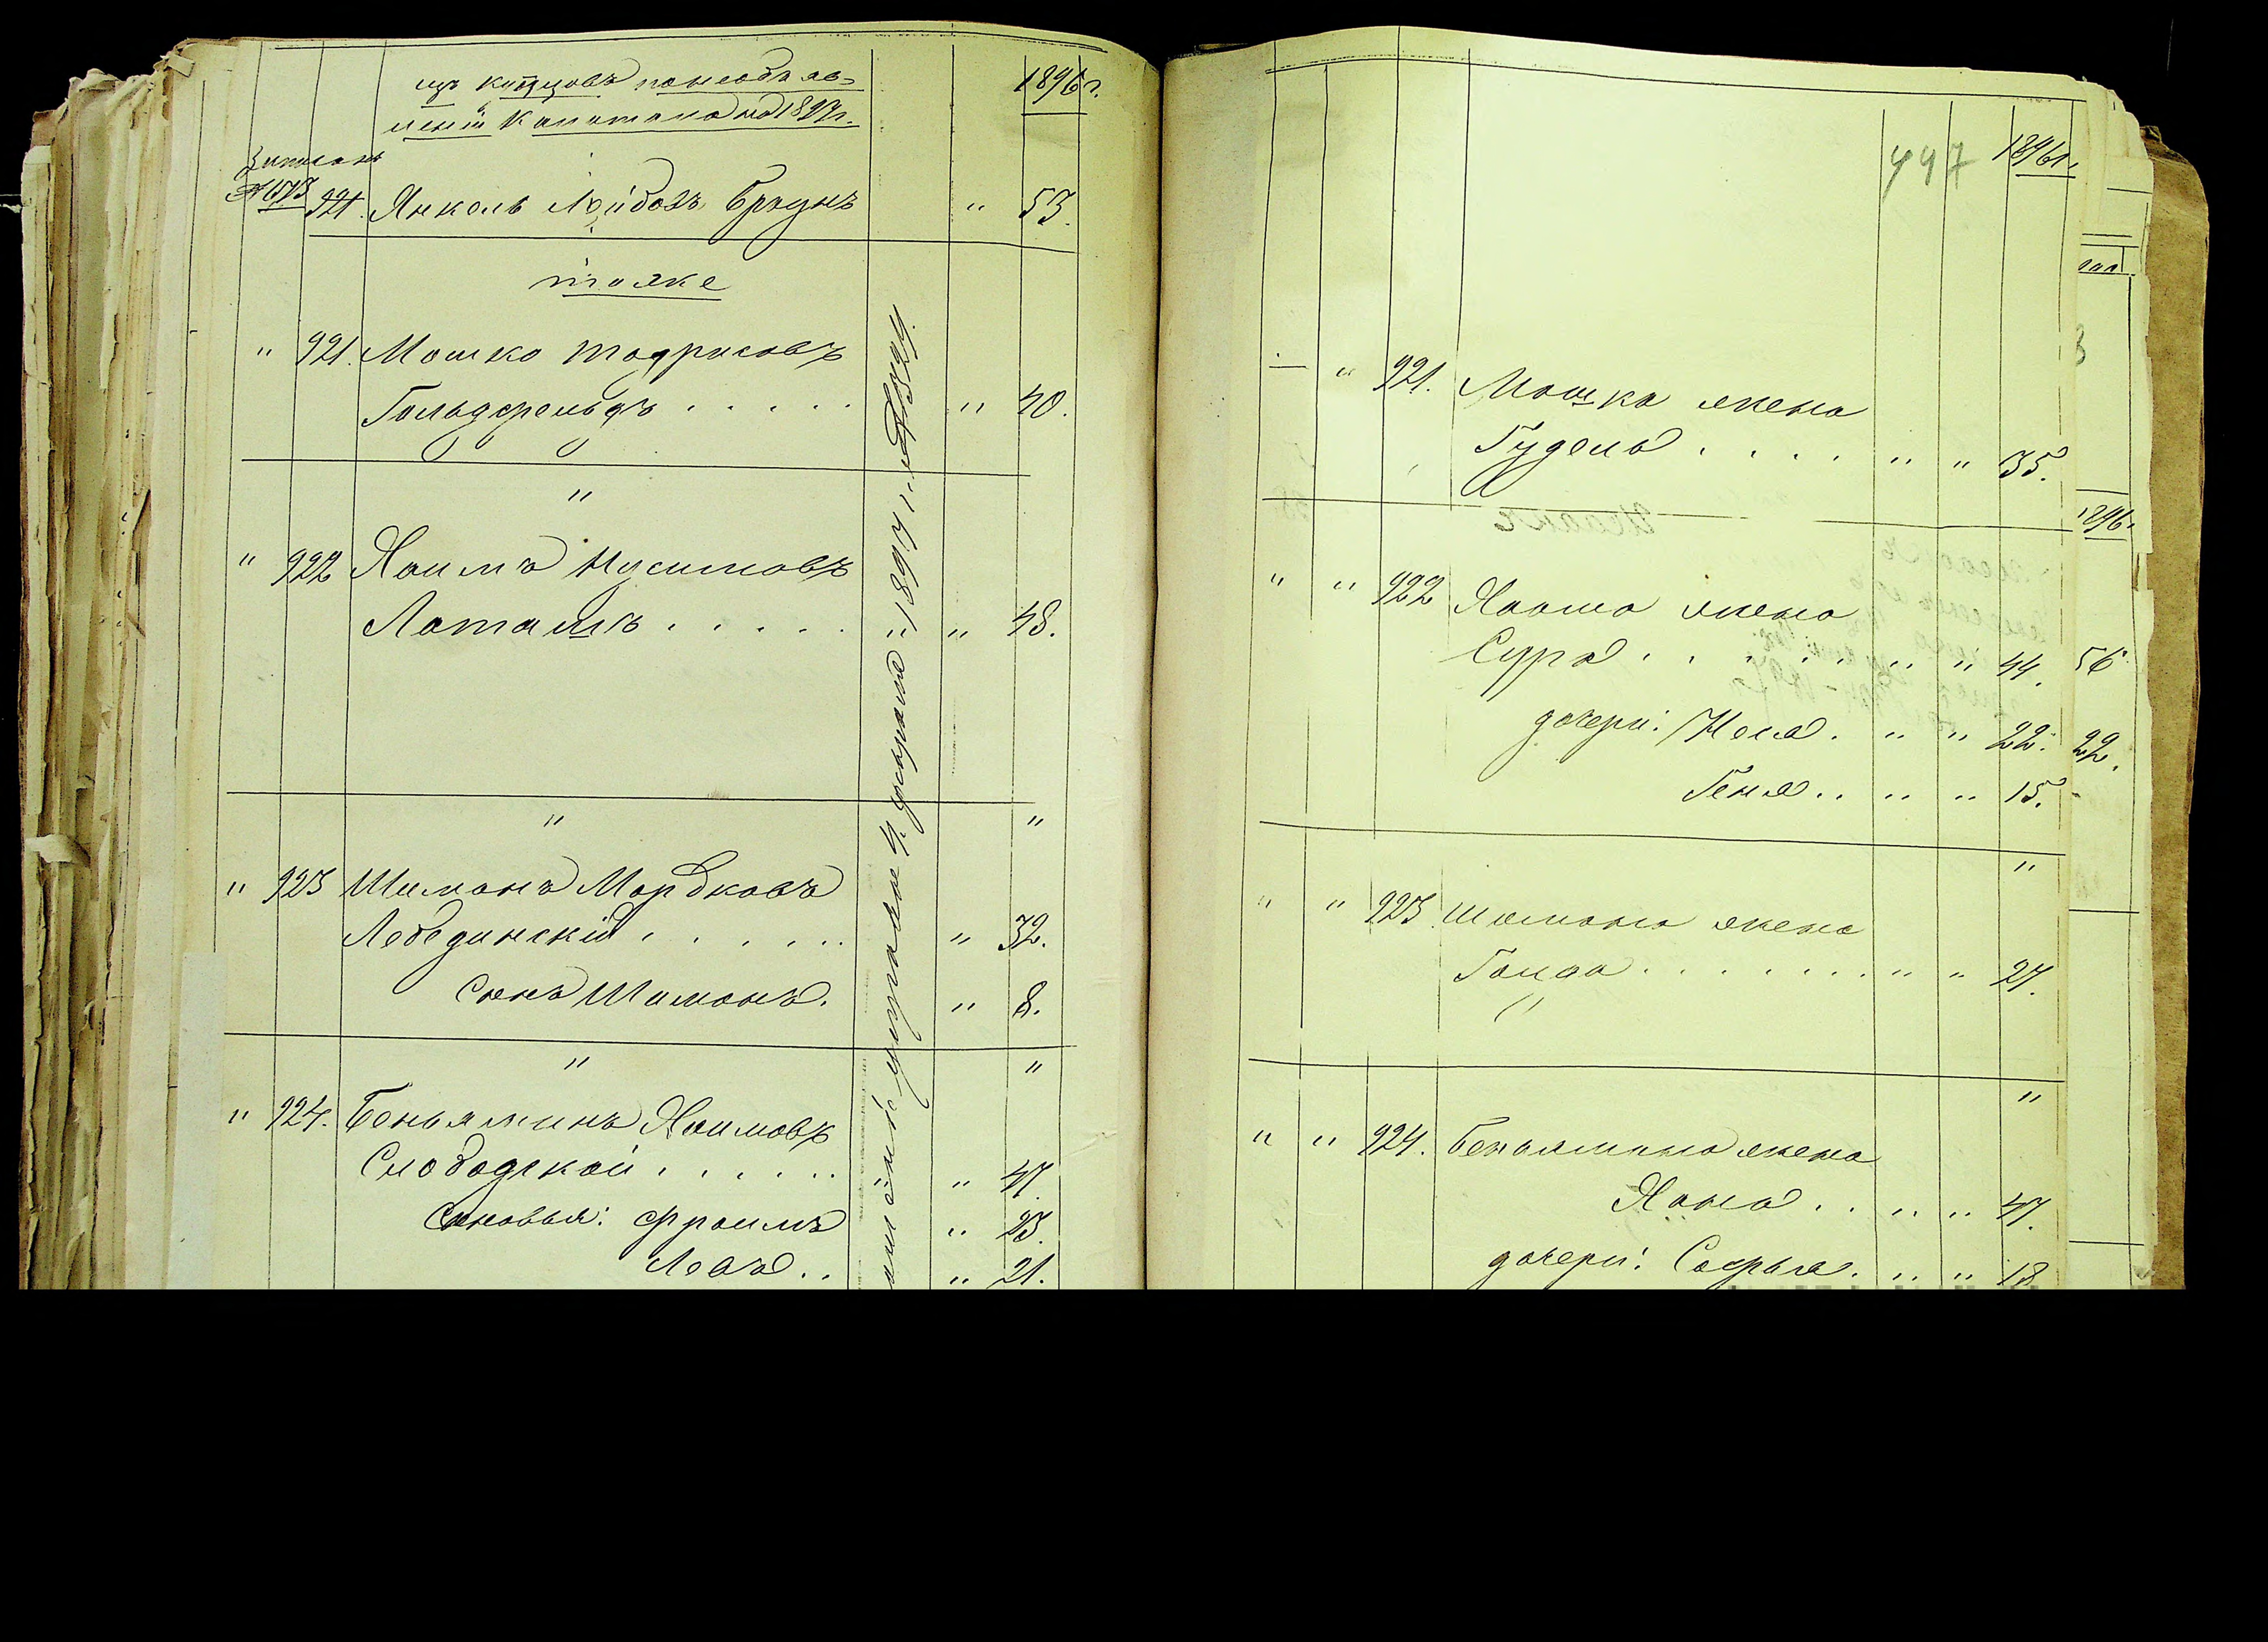 изъ купцовъ по необъяв-
ленію Капитала на 1897 г.
1896 г.
921. Янкель Лейбовъ Браунъ " 53.
тоже
" 921. Мошко Тодрисовъ
Гольдфельдъ . . . . . " 40.
"
" 922 Хаимъ Нусимовъ
Лоташъ . . . . . " 48.
" "
" 923 Шимонъ Мордковъ
Лебединскій . . . . . . " 32.
Сынъ Шимонъ. " 8.
" "
" 924. Беньяминъ Хаимовъ
Слободской . . . . . . " 47.
Сыновья: Фроимъ " 23.
Лейба . . " 21.
1897 г.
497 1896 г.
— " 921. Мошка жена
Гудель . . . . " " 35.
" " 922 Хаима жена
Сура . . . . . " " 44.
дочери: Неня . " " 22.
Геня . . " " 15.
"
" " 923. Шимона жена
Голда . . . . . . . " " 27.
"
" " 924. Беньямина жена
Хана . . " " 47.
дочери: Софья . " " 18
1896 г.
56
22.